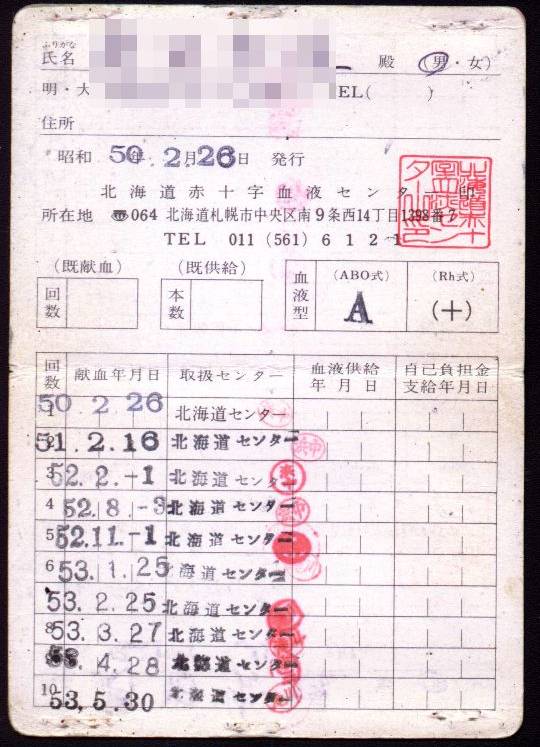 ふりがな
氏名 殿 (男・女)
明・大 TEL( )
住所
昭和 50年 2月26日 発行
北海道赤十字血液センター 印
所在地 〠064 北海道札幌市中央区南9条西14丁目1398番7
TEL 011 (561) 6121
(既献血) (既供給) 血液型 (ABO式) (Rh式)
回数 本数 A (+)
回数 献血年月日 取扱センター 血液供給年月日 自己負担金支給年月日
1 50 2 26 北海道センター
2 51.2.16 北海道センター
3 52.2.-1 北海道センター
4 52.8.-3 北海道センター
5 52.11.-1 北海道センター
6 53.1.25 北海道センター
53.2.25 北海道センター
8 53.3.27 北海道センター
4.28 北海道センター
10 53.5.30 北海道センター